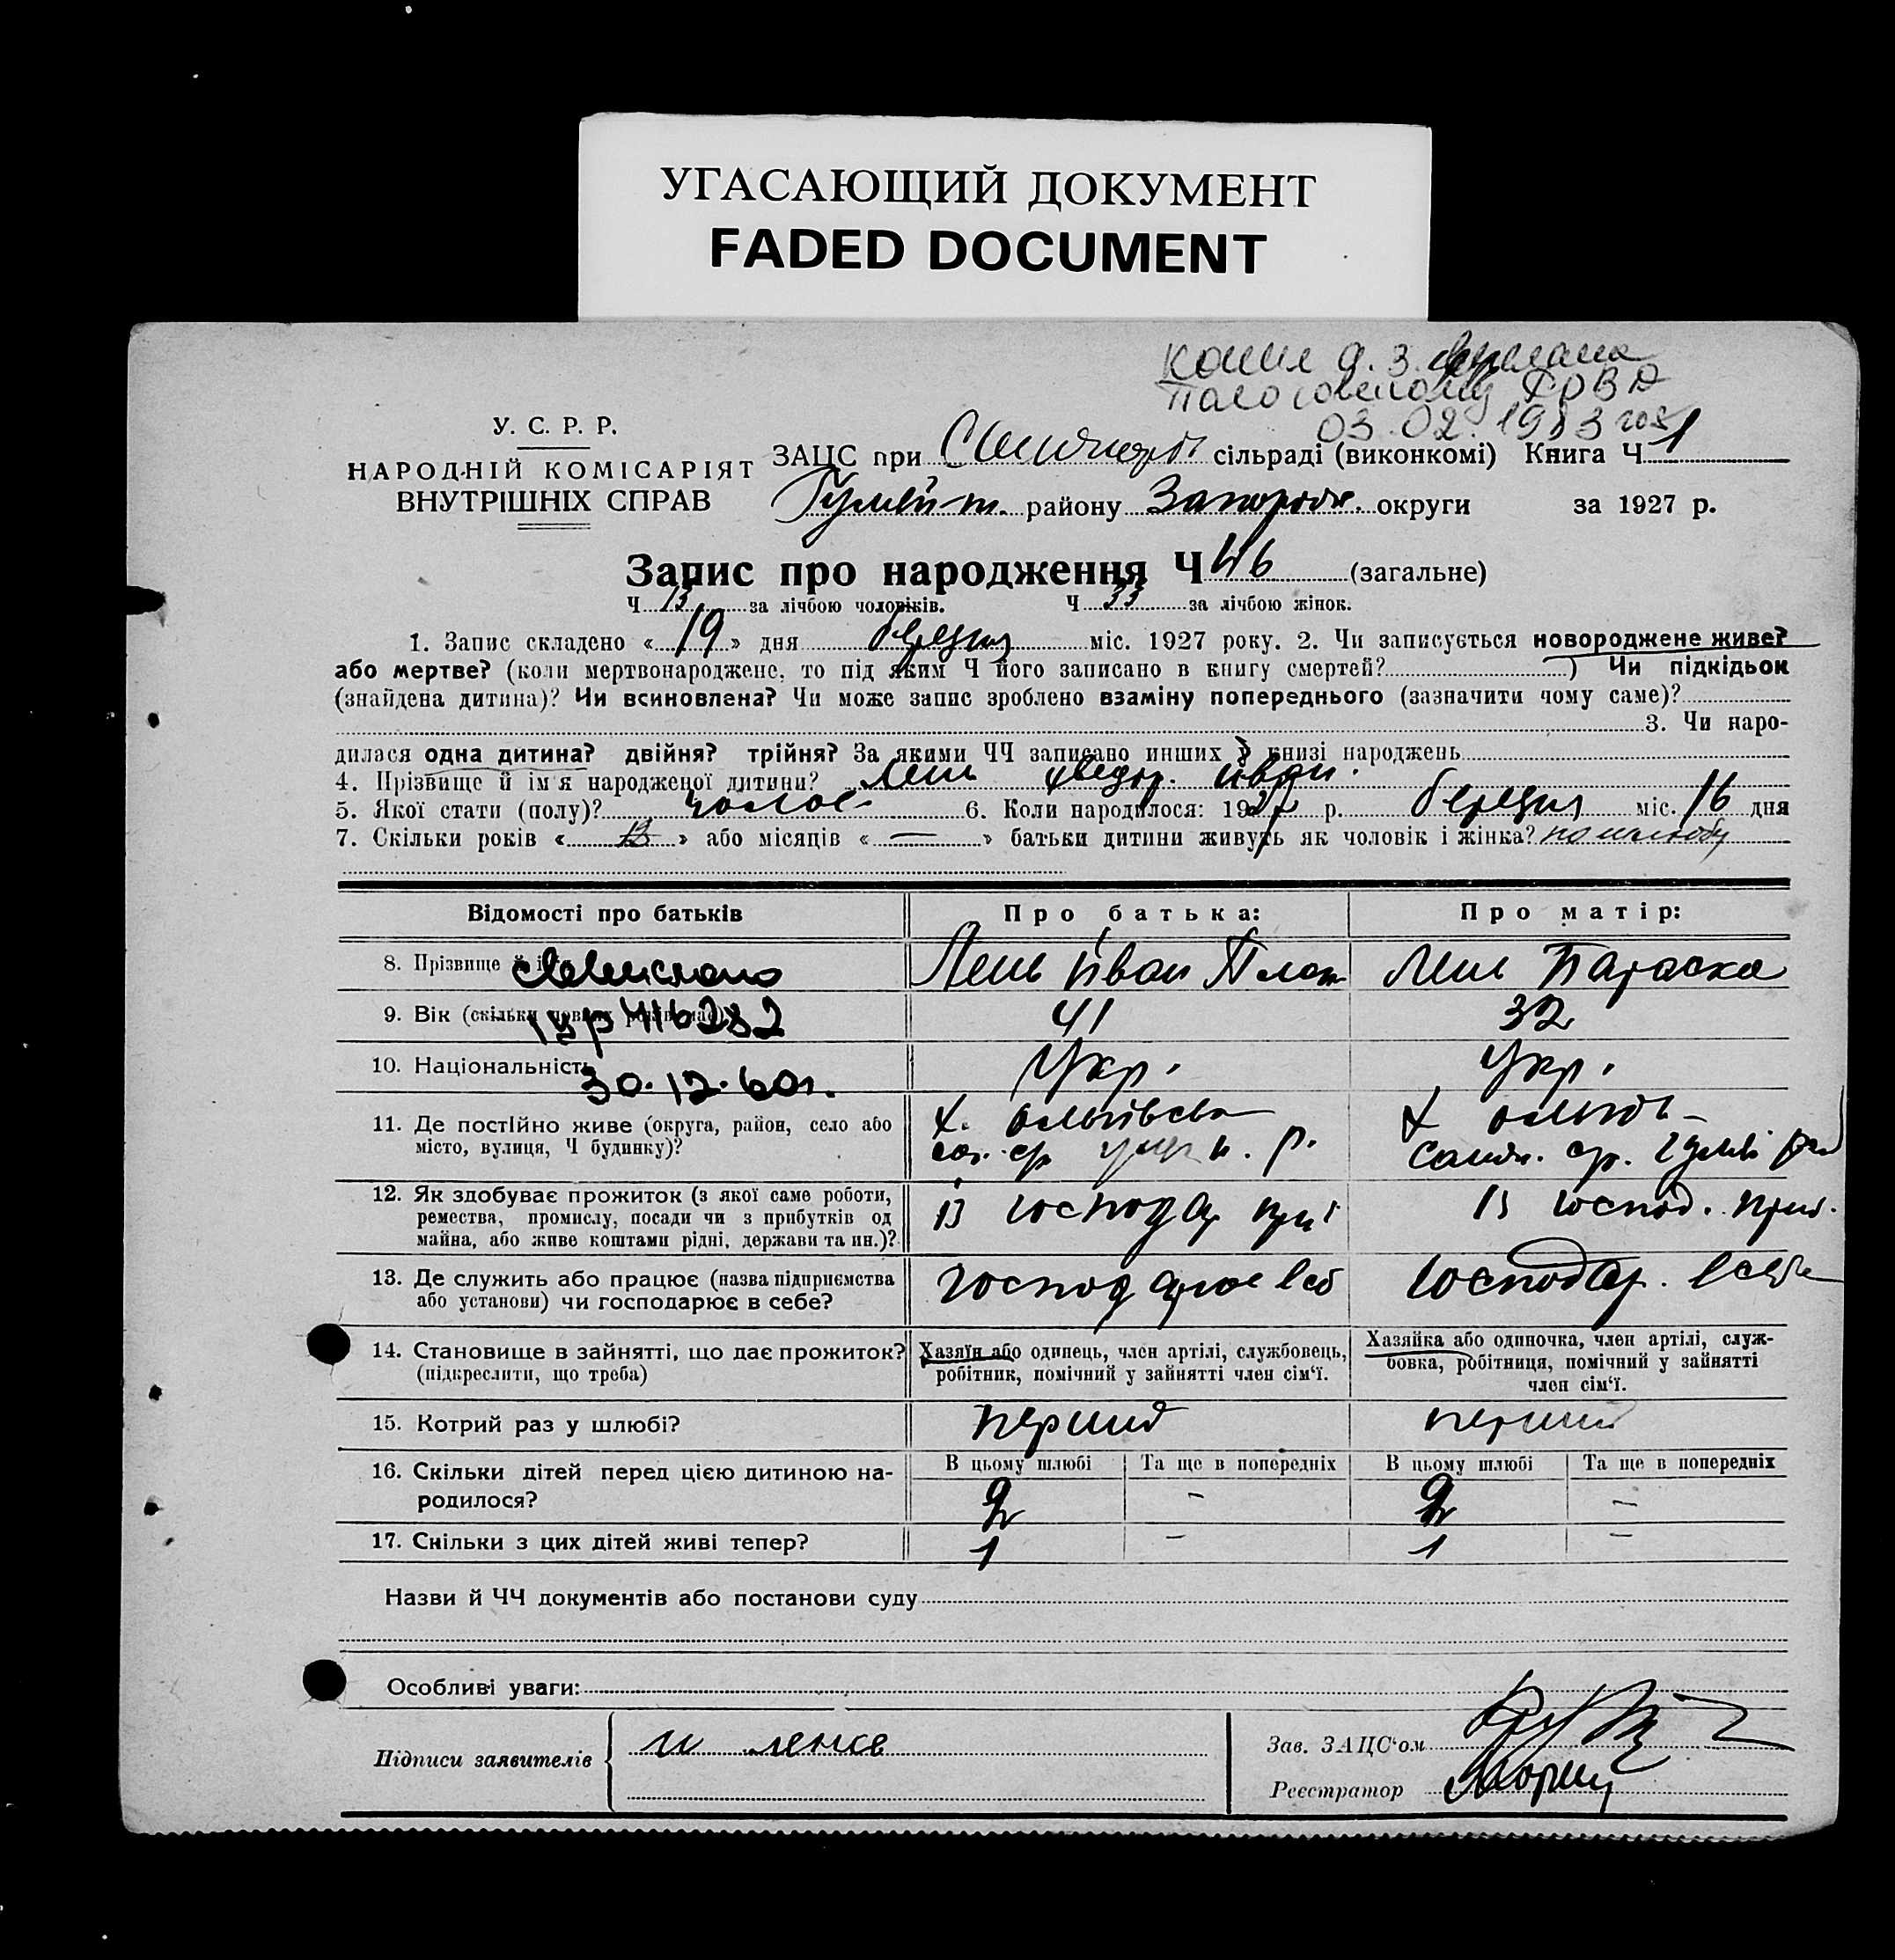 УГАСАЮЩИЙ ДОКУМЕНТ
FADED DOCUMENT
03.02.1983
У. С. Р. Р.
НАРОДНІЙ КОМІСАРІЯТ
ВНУТРІШНІХ СПРАВ
ЗАЦС при сільраді (виконкомі) Книга Ч 1
району Запорож. округи за 1927 р.
Запис про народження Ч 46 (загальне)
Ч 13 за лічбою чоловіків. Ч 33 за лічбою жінок.
1. Запис складено « 19 » дня березня міс. 1927 року. 2. Чи записується новороджене живе?
або мертве? (коли мертвонароджене, то під яким Ч його записано в книгу смертей? ) Чи підкідьок
(знайдена дитина)? Чи всиновлена? Чи може запис зроблено взаміну попереднього (зазначити чому саме)?
3. Чи наро-
дилася одна дитина? двійня? трійня? За якими ЧЧ записано инших у книзі народжень
4. Прізвище й ім'я народженої дитини? Лень Федір. Іван.
5. Якої стати (полу)? чолов. 6. Коли народилося: 1927 р. березня міс. 16 дня
7. Скільки років « 13 » або місяців « — » батьки дитини живуть як чоловік і жінка? по шлюбу
Відомості про батьків Про батька: Про матір:
8. Прізвище й Лень Іван Плат Лень Параска
9. Вік (скільки повних років має) 41 32
416282
10. Національність Укр. Укр.
30.12.60г.
11. Де постійно живе (округа, район, село або
місто, вулиця, Ч будинку)?
х.
р.
х
12. Як здобуває прожиток (з якої саме роботи,
ремества, промислу, посади чи з прибутків од
майна, або живе коштами рідні, держави та ин.)?
Із господар Із господ. приб.
13. Де служить або працює (назва підприємства
або установи) чи господарює в себе?
господарює в себ господар. в себе
14. Становище в зайнятті, що дає прожиток?
(підкреслити, що треба)
Хазяїн або одинець, член артілі, службовець,
робітник, помічний у зайнятті член сім'ї.
Хазяйка або одиночка, член артілі, служ-
бовка, робітниця, помічний у зайнятті
член сім'ї.
15. Котрий раз у шлюбі? перший перший
16. Скільки дітей перед цією дитиною на-
родилося?
В цьому шлюбі Та ще в попередніх В цьому шлюбі Та ще в попередніх
2 – 2 –
17. Скільки з цих дітей живі тепер? 1 – 1 –
Назви й ЧЧ документів або постанови суду
Особливі уваги:
Підписи заявителів
Зав. ЗАЦС'ом
Реєстратор